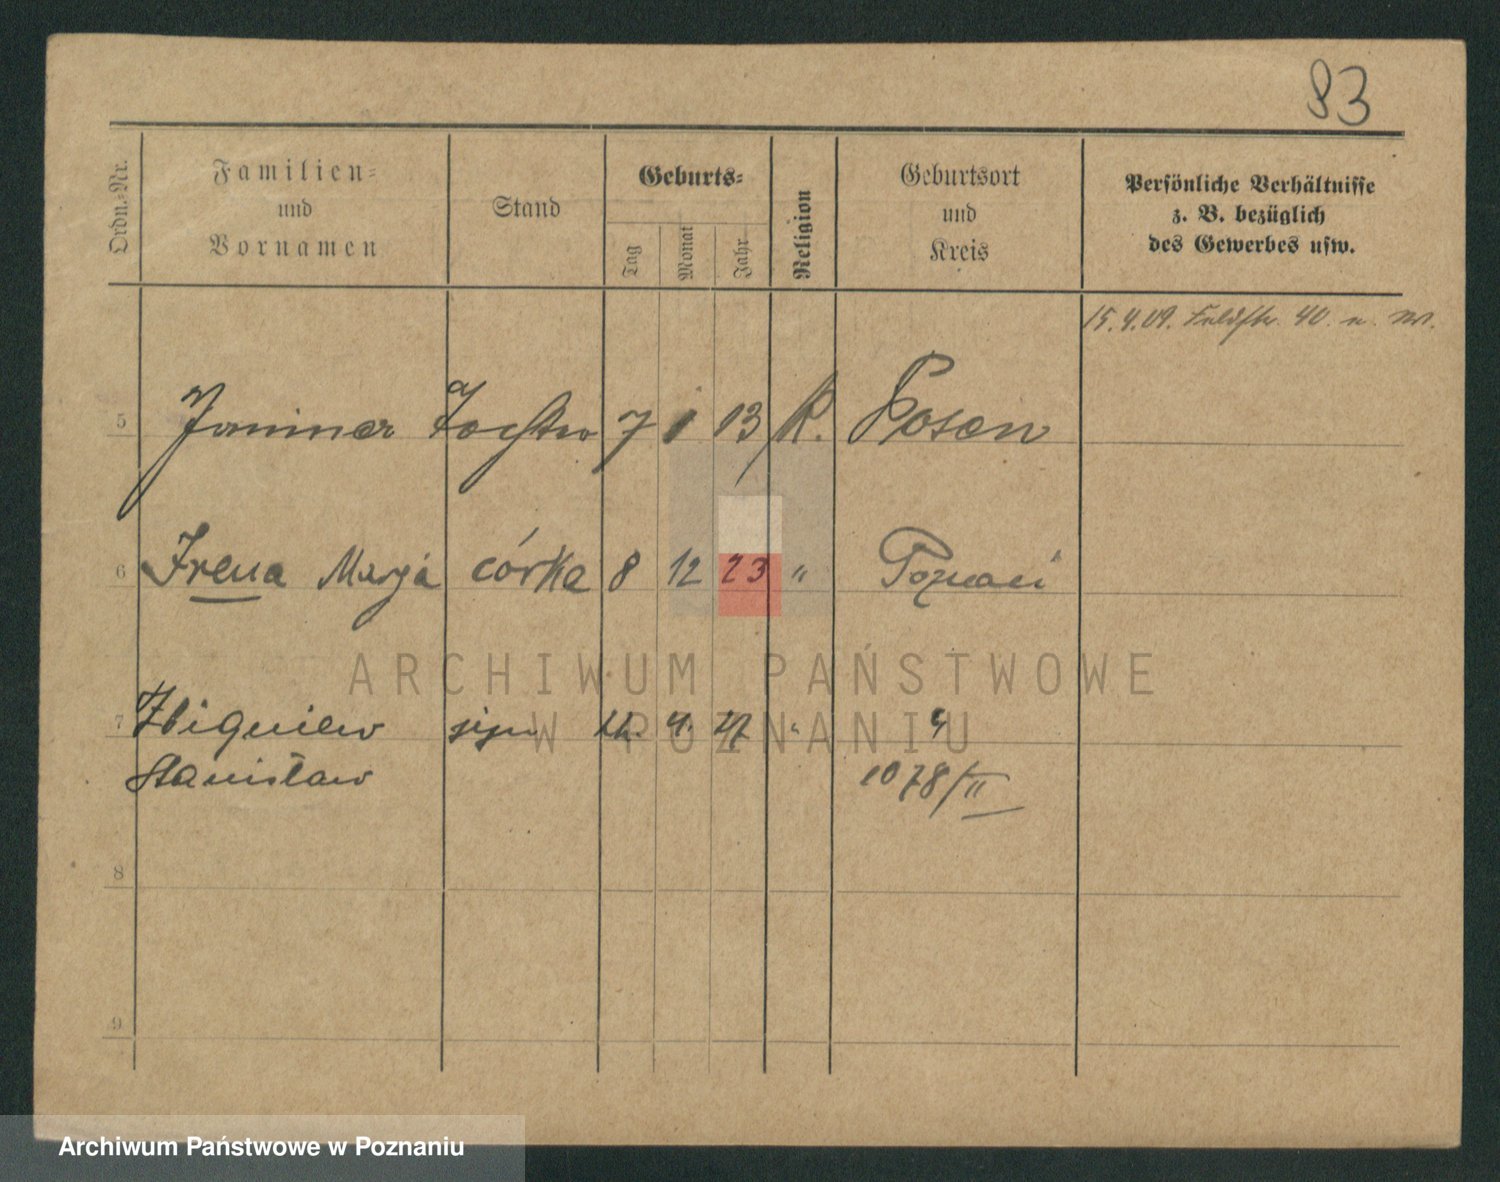 83
Ordn.-Nr.
Familien-
und
Vornamen
Stand
Geburts-
Tag
Monat
Jahr
Religion
Geburtsort
und
Kreis
Persönliche Verhältnisse
z. B. bezüglich
des Gewerbes usw.
15.4.09. Feldstr. 40.
5 Tochter 7 1 13 K. Posen
6 Irena Marja córka 8 12 23 " Poznań
ARCHIWUM PAŃSTWOWE
W POZNANIU
7 Zbigniew syn 4. 27 "
Stanisław 1078/II
8
9
Archiwum Państwowe w Poznaniu